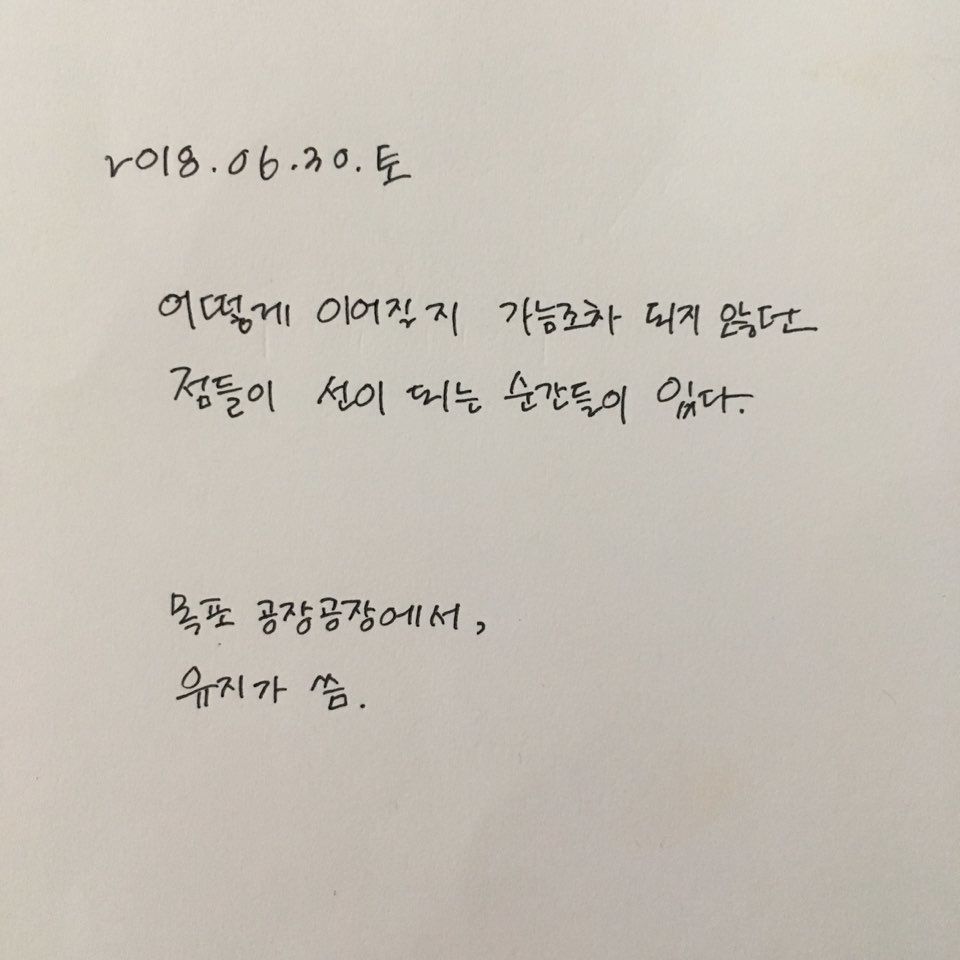 2018.06.30.토
어떻게 이어질지 가능조차 되지 않던
점들이 선이 되는 순간들이 있다.
목포 공장공장에서,
유지가 씀.